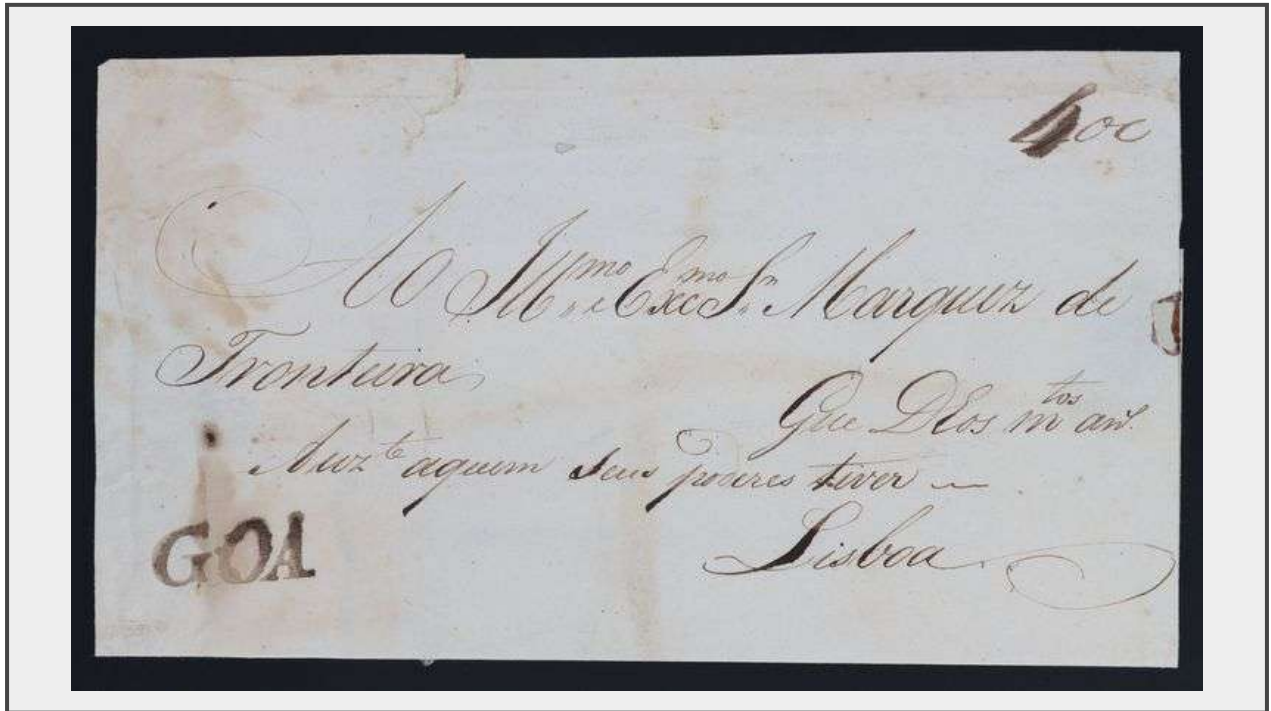 400
Ao Illmo e Excmo Snr Marquez de
Fronteira
Gue DEos mtos ans.
Auzte aquem seus poderes tiver
Lisboa
GOA